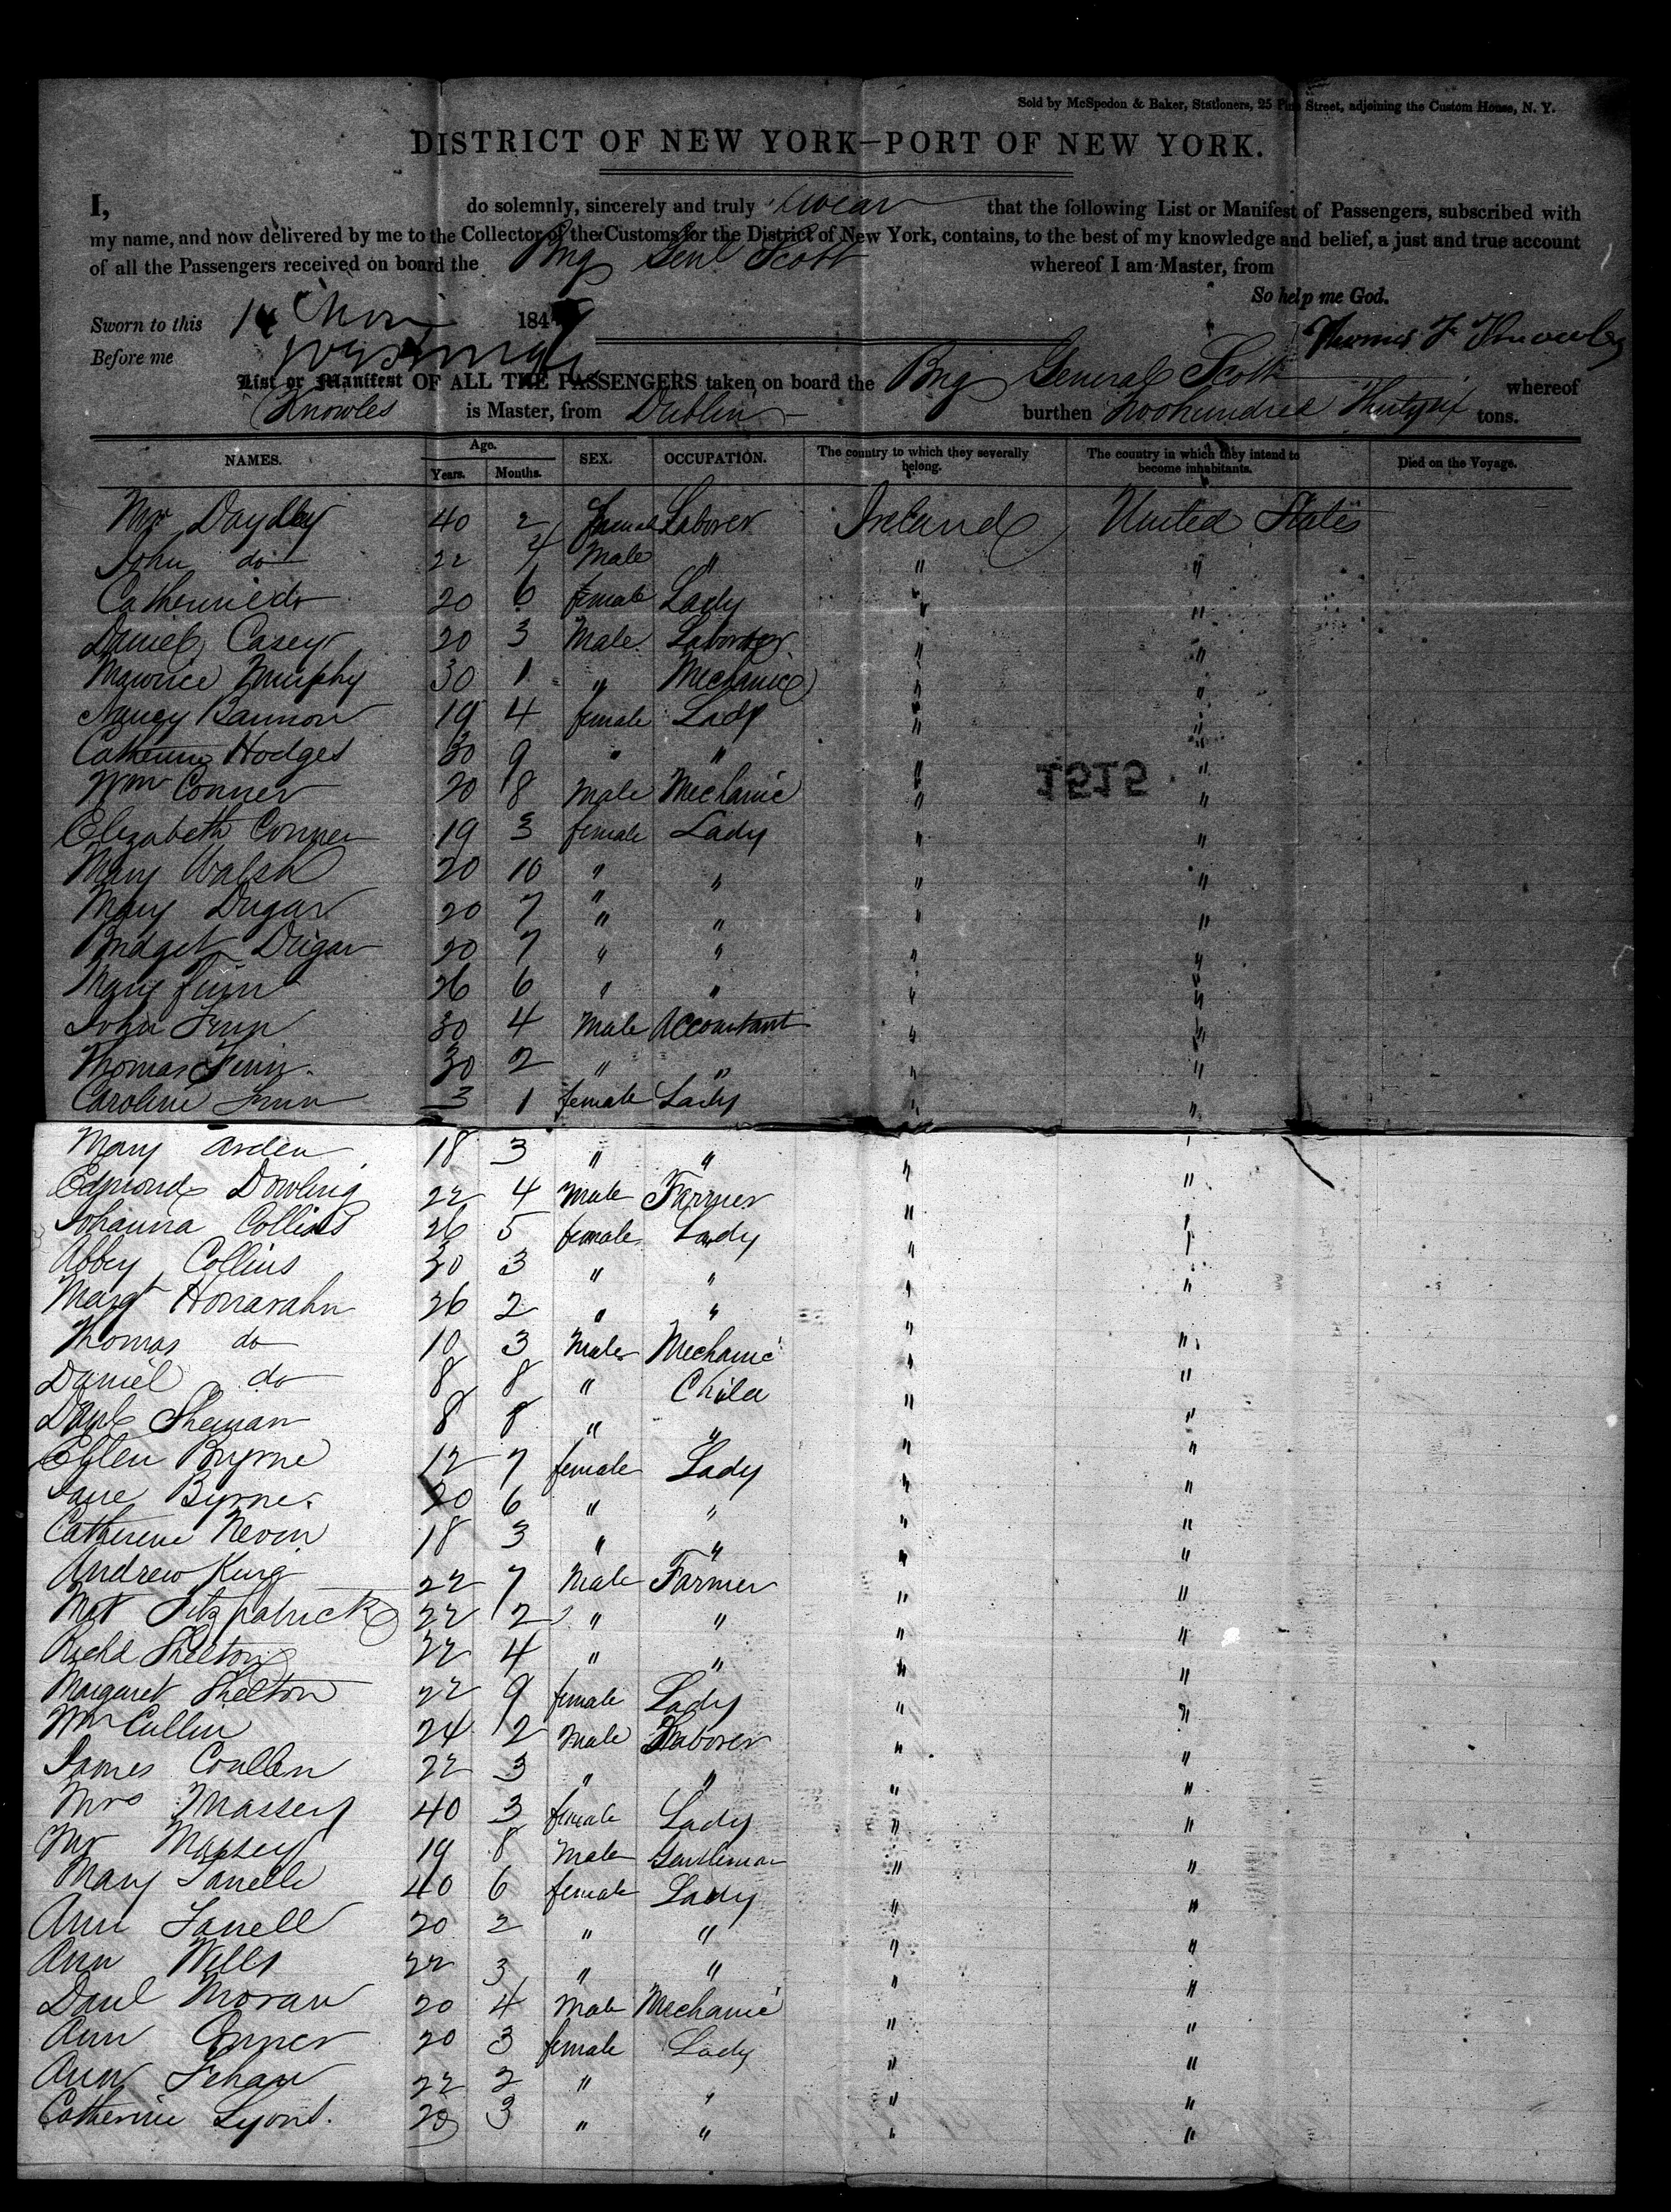 Sold by McSpedon & Baker, Stationers, 25 Pine Street, adjoining the Custom House, N. Y.
DISTRICT OF NEW YORK—PORT OF NEW YORK.
I, do solemnly, sincerely and truly swear that the following List or Manifest of Passengers, subscribed with
my name, and now delivered by me to the Collector of the Customs for the District of New York, contains, to the best of my knowledge and belief, a just and true account
of all the Passengers received on board the Brig Genl Scott whereof I am Master, from
So help me God.
Sworn to this 14 184
Thomas F Knowles
Before me
List or Manifest OF ALL THE PASSENGERS taken on board the Brig General Scott whereof
Knowles is Master, from Dublin burthen Two hundred Thirty six tons.
NAMES. Age. Years. Months. SEX. OCCUPATION. The country to which they severally belong. The country in which they intend to become inhabitants. Died on the Voyage.
40 2 female Laborer Ireland United States
John do 22 4 Male " " "
Catherine do 20 6 female Lady " "
Daniel Casey 20 3 Male Laborer " "
Maurice Murphy 30 1 " Mechanic " "
Nancy Bannon 19 4 female Lady " "
Catherine Hodges 30 9 " " " "
Wm Conner 20 8 Male Mechanic " "
Elizabeth Conner 19 3 female Lady " "
Mary Walsh 20 10 " " " "
Mary Dugan 20 7 " " " "
Bridget Dugan 20 7 " " " "
Mary Finn 26 6 " " " "
John Finn 30 4 Male Accountant " "
Thomas Finn 30 2 " " " "
Caroline Finn 3 1 female Lady " "
Mary Arden 18 3 " " " "
Edmond Dowling 22 4 Male Farmer " "
Johanna Collins 26 5 female Lady " "
Abby Collins 30 3 " " " "
Margt Honarahn 26 2 " " " "
Thomas do 10 3 Male Mechanic " "
Daniel do 8 8 " Child " "
Danl Sheenan 8 8 " " " "
Ellen Byrne 12 7 female Lady " "
Jane Byrne 20 6 " " " "
Catherine Nevin 18 3 " " " "
Andrew King 22 7 Male Farmer " "
Mat Fitzpatrick 22 2 " " " "
Richd Shelton 22 4 " " " "
Margaret Shelton 22 9 female Lady " "
Wm Cullen 24 2 Male Laborer " "
James Coullen 22 3 " " " "
Mrs Massey 40 3 female Lady " "
Mr Massey 19 8 Male Gentleman " "
Mary Farrell 40 6 female Lady " "
Ann Farrell 20 2 " " " "
Ann Wills 22 3 " " " "
Danl Moran 20 4 Male Mechanic " "
Ann Conner 20 3 female Lady " "
Ann Fehan 22 2 " " " "
Catherine Lyons. 20 3 " " " "